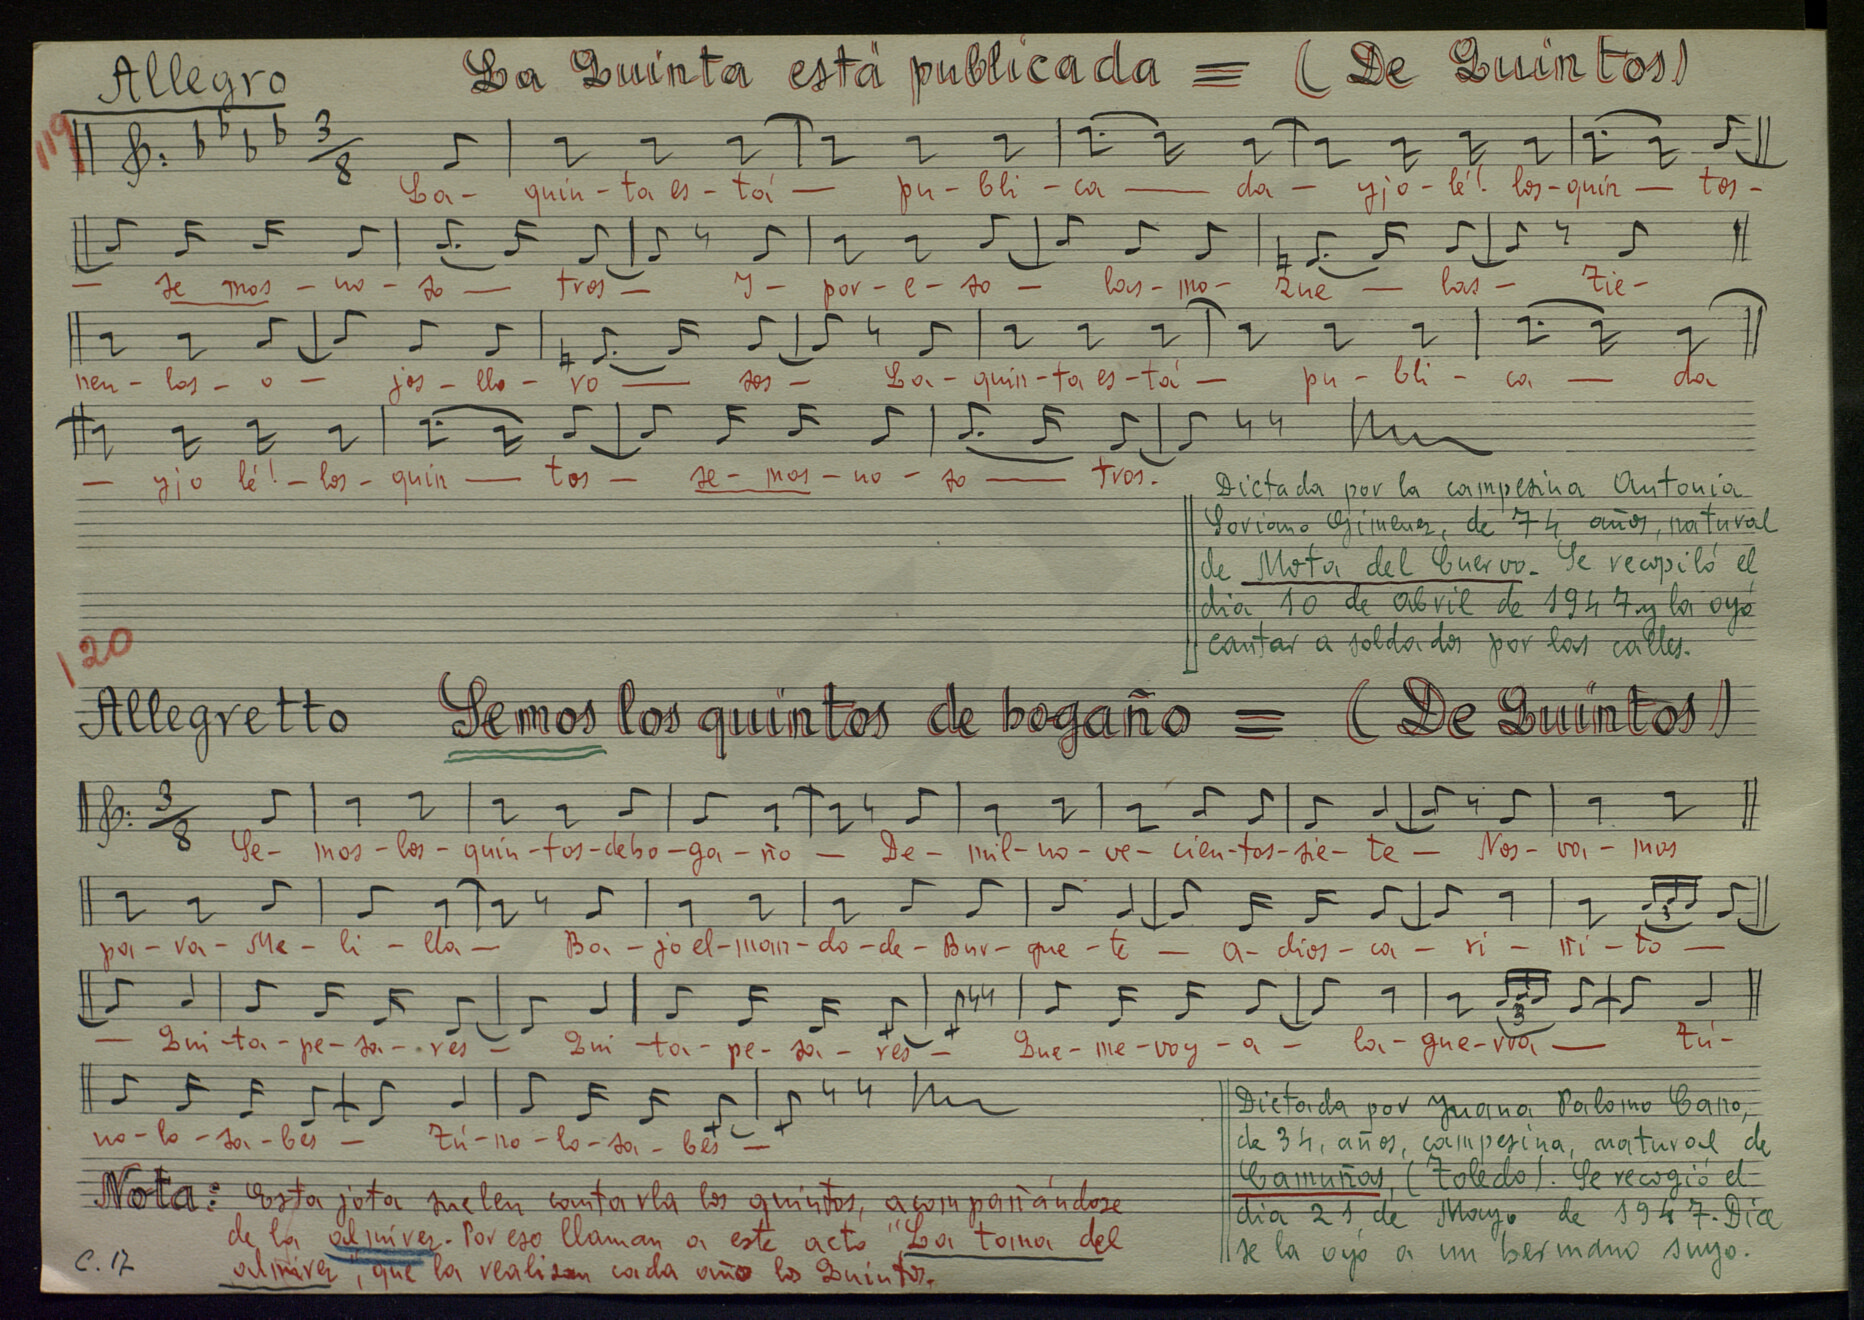 Allegro La Quinta está publicada = (De Quintos)
119
3/8
La- quin-ta es-tá — pu-bli-ca — da — yjo-lé! los-quin — tos-
— se mos-no-so — tros — Y- por-e-so — las-mo- zue — las- Tie-
nen-los-o — jos-llo-ro — sos- La-quin-ta es-tá — pu-bli-ca — da
— yjo lé!-los-quin — tos — se-mos-no-so — tros.
Dictada por la campesina Antonia
Soriano Gimenez, de 74 años, natural
de Mota del Cuervo. Se recopiló el
dia 10 de abril de 1947 y la oyó
cantar a soldados por las calles.
120
Allegretto Semos los quintos de hogaño = (De Quintos)
3/8
Se- mos-los-quin-tos-deho-ga-ño — De-mil-no-ve-cien-tos-sie-te — Nos-va-mos
pa-ra-Me-li-lla — Ba-jo el-man-do-de-Bur-gue-te — a-dios-ca-ri-ñi-to —
3
— Qui-ta-pe-sa-res — Qui-ta-pe-sa-res — Que-me-voy-a — la-gue-rra — Tú-
3
no-lo-sa-bes — Tú-no-lo-sa-bes —
Dictada por Juana Palomo Cano,
de 34, años, campesina, natural de
Camuñas, (Toledo). Se recogió el
dia 21 de Mayo de 1947. Dice
se la oyó a un hermano suyo.
Nota: Esta jota suelen cantarla los quintos, acompañándose
de la almirez. Por eso llaman a este acto "La toma del
almirez", que la realizan cada año los Quintos.
C. 17